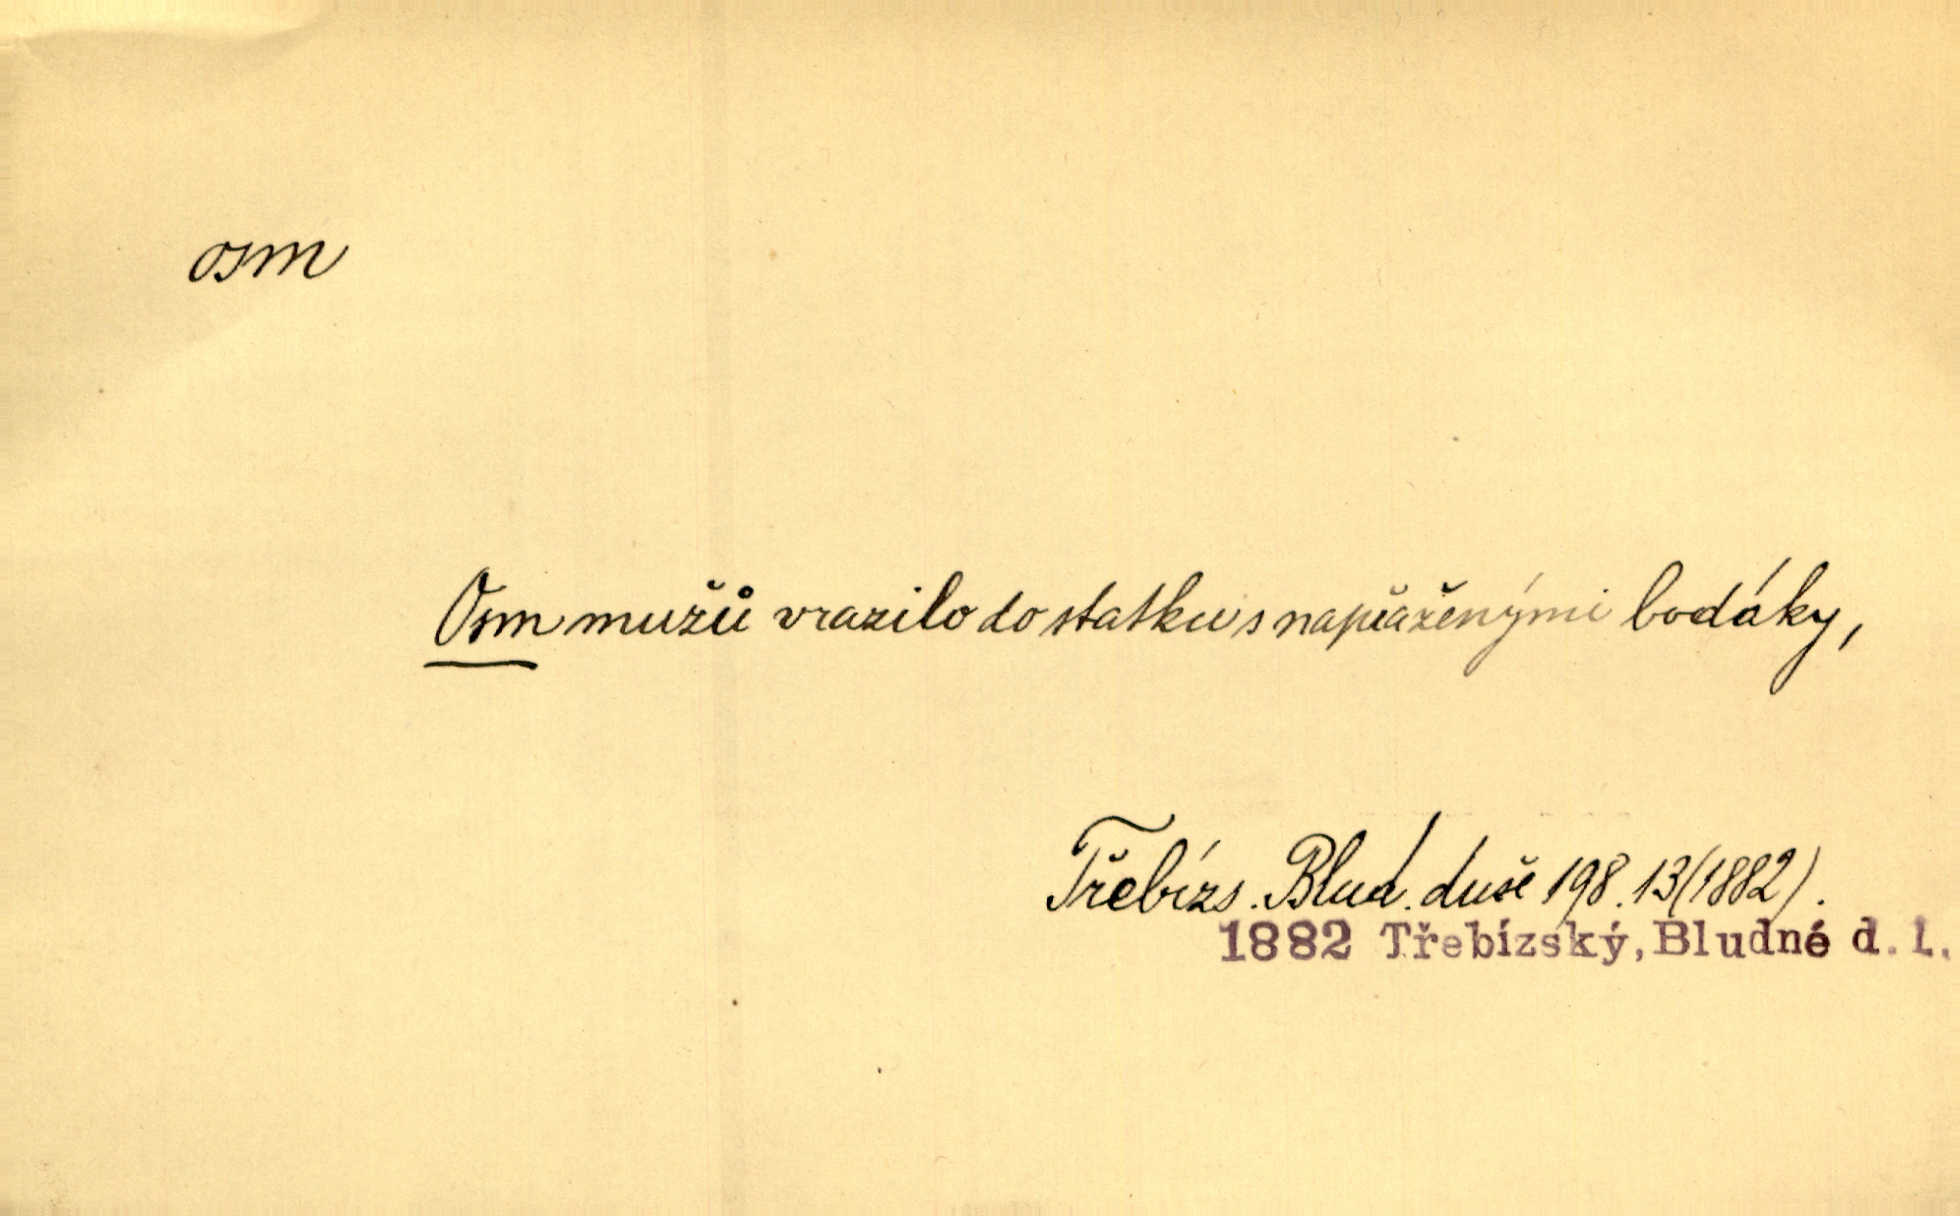 osm
Osm mužů vrazilo do statku s napřaženými bodáky,
Třebízs. Blud. duše 198. 13 (1882).
1882 Třebízský, Bludné d. 1.